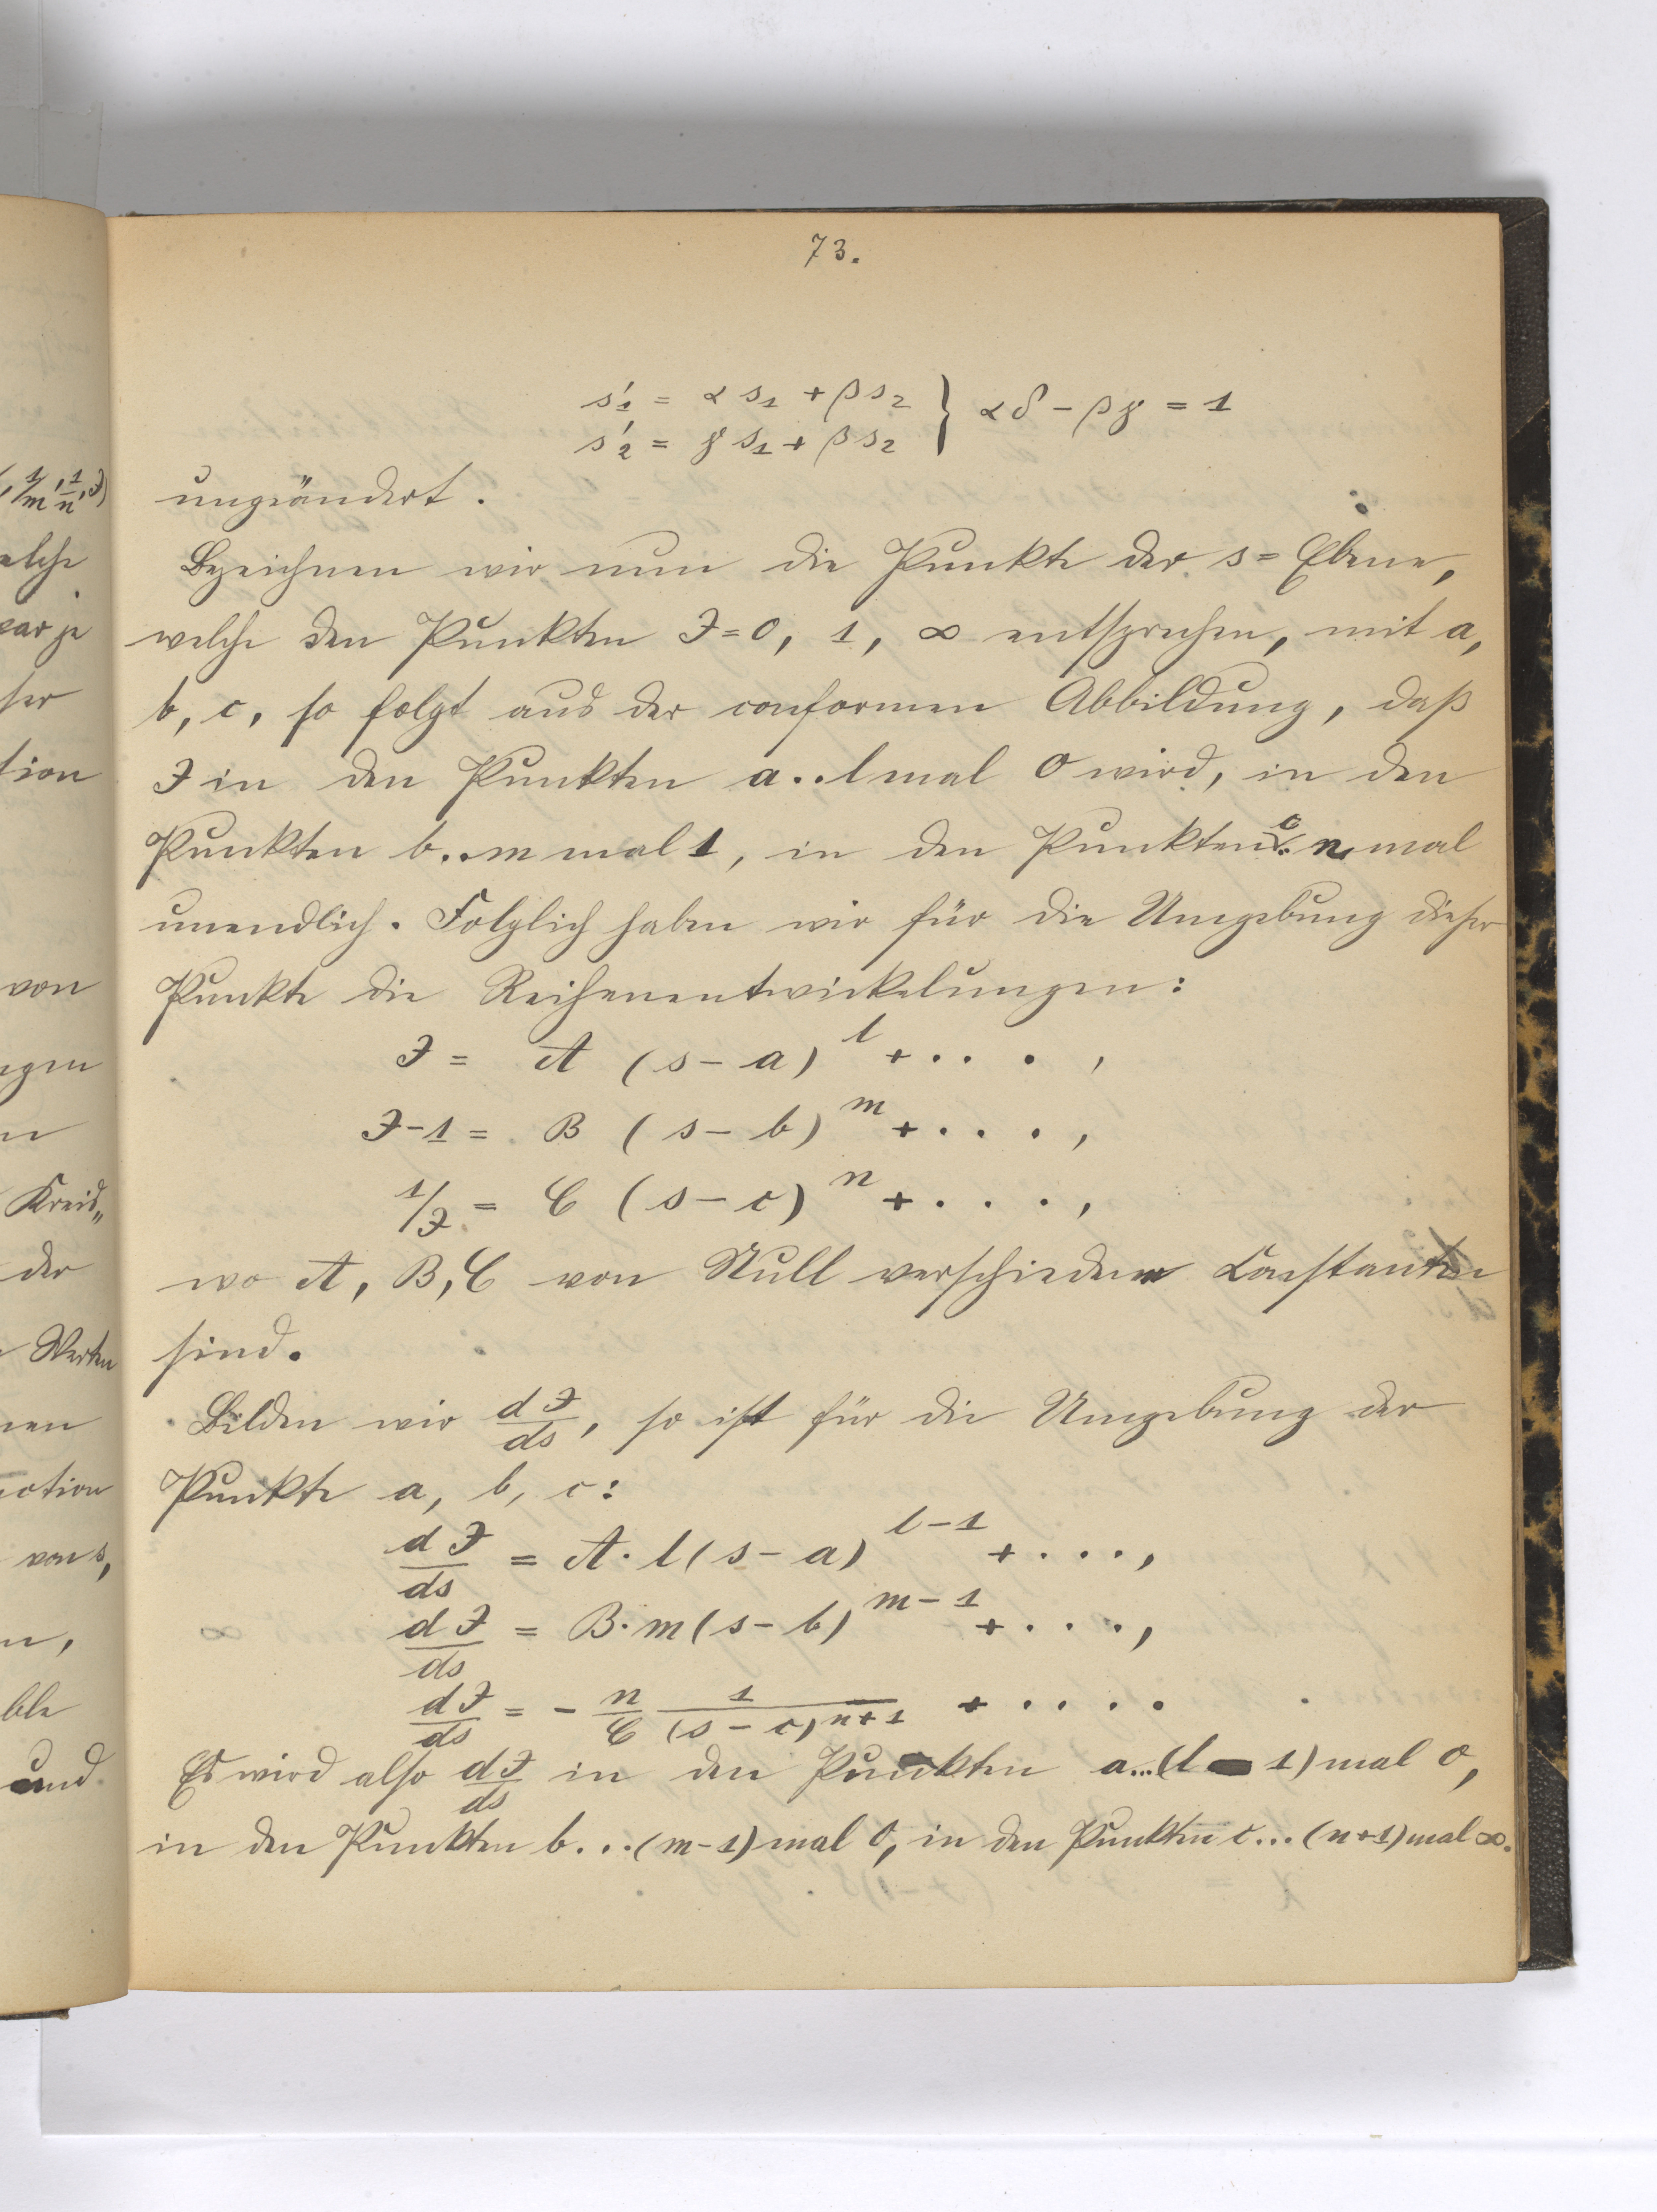 73.
s₁' = αs₁ + βs₂ } αδ − βγ = 1
s₂' = γs₁ + βs₂
ungeändert.
Bezeichnen wir nun die Punkte der s=Ebene,
welche den Punkten J=0, 1, ∞ entsprechen, mit a,
b, c, so folgt aus der conformen Abbildung, daß
J in den Punkten a..l mal 0 wird, in den
Punkten b..m mal 1, in den Punkten c.. n mal
unendlich. Folglich haben wir für die Umgebung dieser
Punkte die Reihenentwickelungen:
J = A (s−a)^l + . . . ,
J−1 = B (s−b)^m + . . . ,
1/J = C (s−c)^n + . . . ,
wo A, B, C von Null verschiedene Constanten
sind.
Bilden wir dJ/ds, so ist für die Umgebung der
Punkte a, b, c:
dJ/ds = A·l(s−a)^{l−1} + . . . . ,
dJ/ds = B·m(s−b)^{m−1} + . . . . ,
dJ/ds = − n/C 1/(s−c)^{n+1} + . . . .
Es wird also dJ/ds in den Punkten a...(l − 1) mal 0,
in den Punkten b...(m−1) mal 0, in den Punkten c...(n+1) mal ∞.
(, 1/m, 1/n, J)
elche
par je
tion
von
ngen
Kreis„
der
Werten
nen
nction
von s,
und